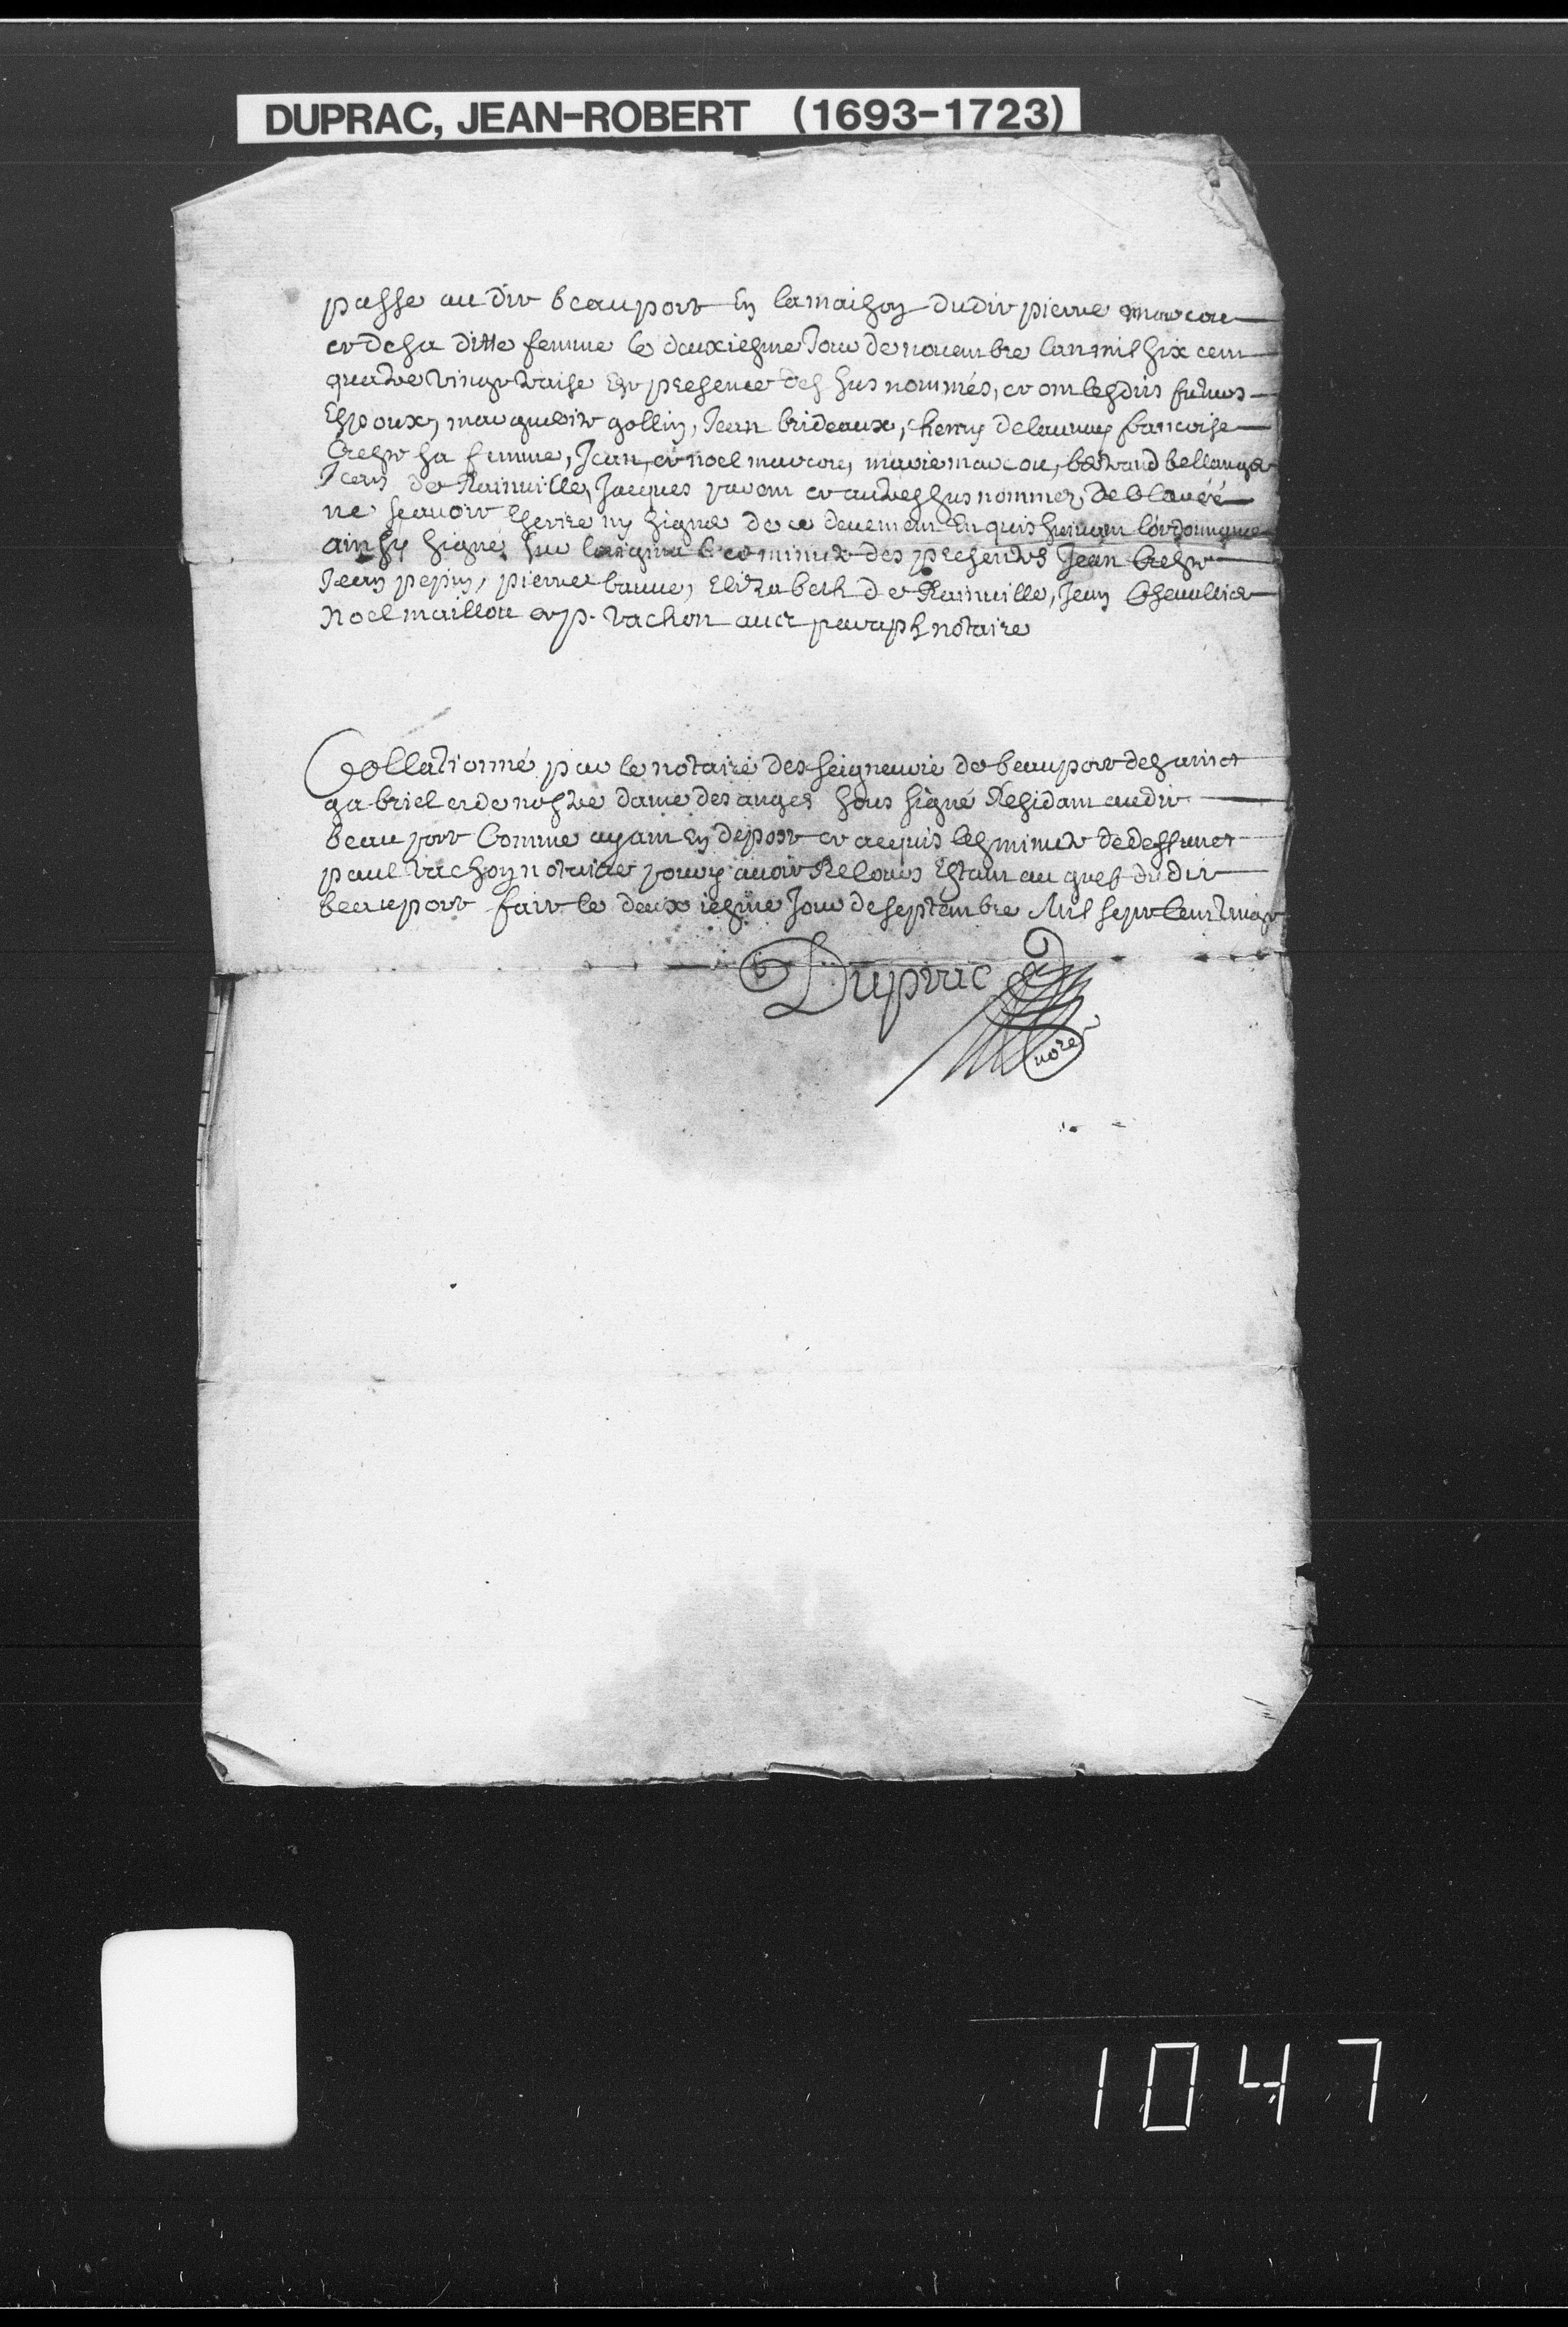 DUPRAC, JEAN-ROBERT (1693-1723)
passe au dit beauport En la maison dudit pierre marcou
et de sa ditte femme le deuxiesme Jour de novembre lan mil six cent
quatre vingt traise En presence des sus nommés, et ont lesdits futurs
Espoux, marguerite gollin, Jean brideaux, henry delaunay francoise
Crest sa femme, Jean, et noel marcou, marie marcou, bertrand bellanger
Jean de Rainville, Jacques parent et autres sus nommez, declaréé
ne scavoir Escrire ny signer de ce deuement Enquis suivant l'ordonnance
ainsy signé, sur loriginal et minute des presentes Jean Crest
Jean pepin, pierre, Elizabeth de Rainville, Jean Chevallier
Noel maillou et p. vachon avec paraph notaire
Collationné par le notaire des seigneurie de beauport de sainct
gabriel et de nostre dame des anges sous signé Residant audit
beauport Comme ayant En depost et acquis les minute de deffunct
paul vachon notaire Estant au dudit
beauport fait le deuxiesme Jour de septembre Mil sept Cent vingt
Duprac
nore
1047